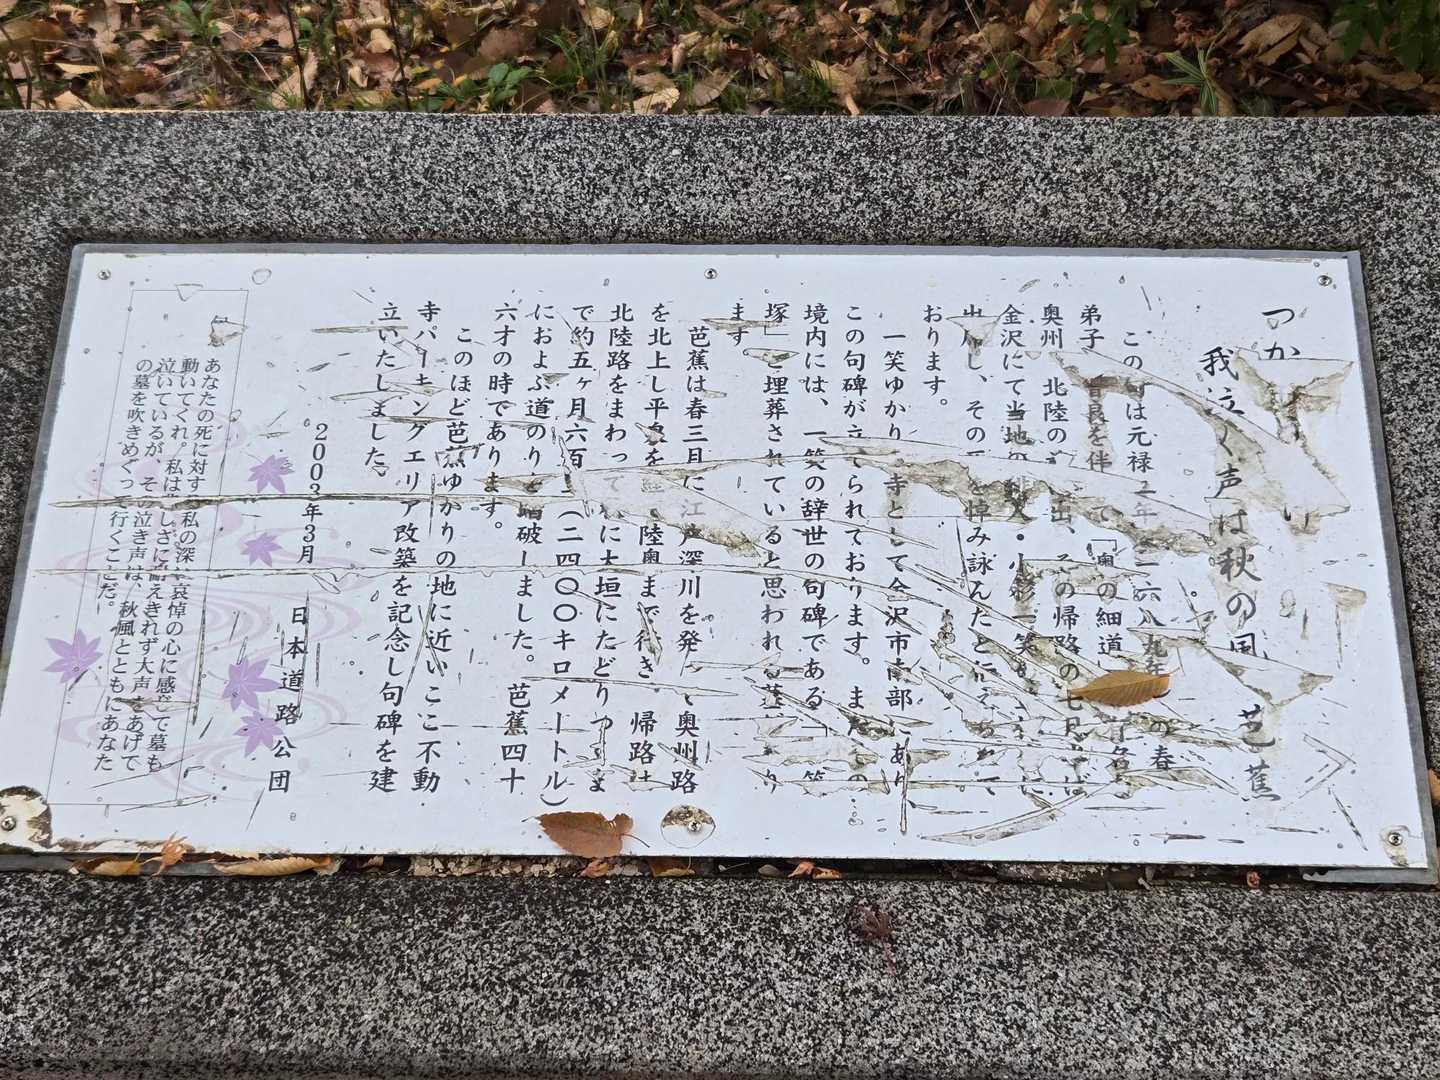 つか
我泣く声は秋の風 芭蕉
この句は元禄二年 一六八九年 の春
弟子 曽良を伴 て「奥の細道
奥州 北陸の 出、その帰路の七月
金沢にて当地の俳人・小杉一笑
し、その を悼み詠んだと
おります。
一笑ゆかり 寺として金沢市南部にあり
この句碑が立てられております。また
境内には、一笑の辞世の句碑である
塚」と埋葬されていると思われる
ます
芭蕉は春三月に江戸深川を発 て奥州路
を北上し平泉を経 陸奥まで行き 帰路は
北陸路をまわって に大垣にたどりつ
で約五ヶ月六百 (二四〇〇キロメートル)
におよぶ道のり 踏破しました。芭蕉四十
六才の時であります。
このほど芭蕉ゆかりの地に近いここ不動
寺パーキングエリア改築を記念し句碑を建
立いたしました。
2003年3月
日本道路公団
あなたの死に対する私の深い哀悼の心に感じて墓も
動いてくれ。私は しさに耐えきれず大声をあげて
泣いているが、その泣き声は、秋風とともにあなた
の墓を吹きめぐって行くことだ。